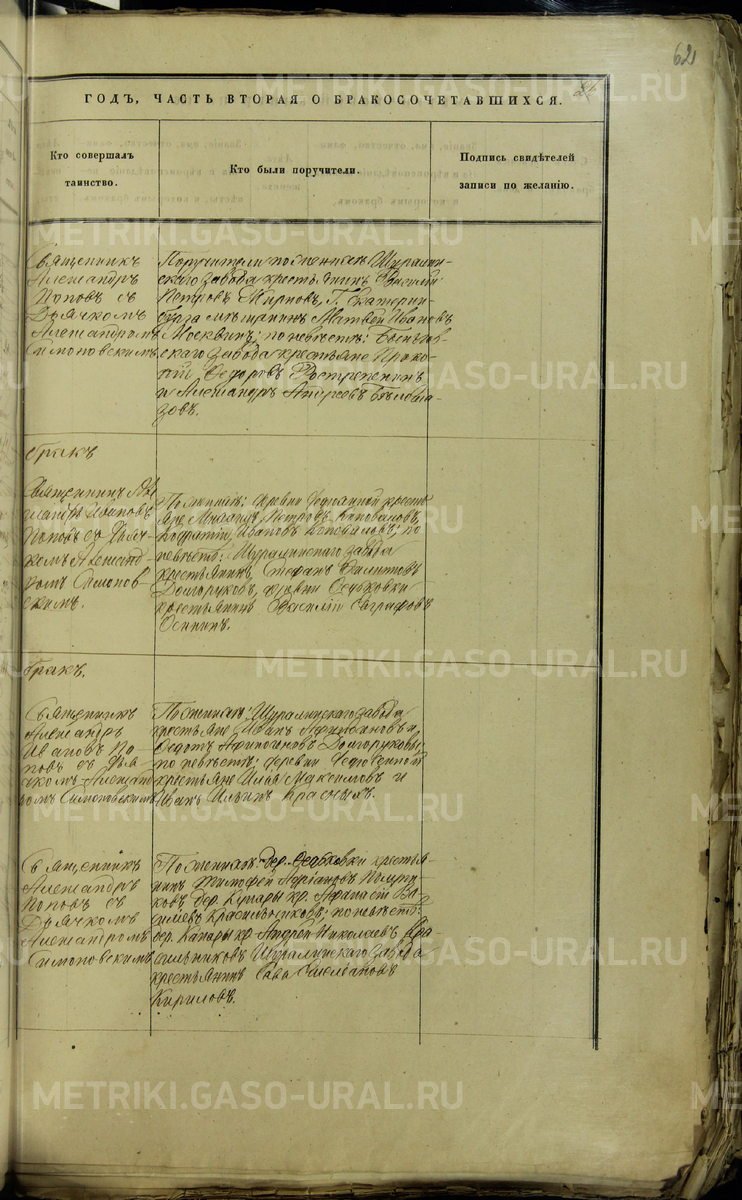 62
ГОДЪ, ЧАСТЬ ВТОРАЯ О БРАКОСОЧЕТАВШИХСЯ.
Кто совершалъ
таинство.
Кто были поручители.
Подпись свидѣтелей
записи по желанію.
Священникъ
Александръ
Поповъ съ
Дьячкомъ
Александромъ
Симоновскимъ
Поручители по женихѣ Шуралин-
скаго завода крестьянинъ Василій
Петровъ Г. Екатерин-
бурга мѣщанинъ Матвей Ивановъ
Москвинъ; по невѣстѣ: Быньгов-
скаго завода крестьяне Проко-
пій Ѳедоровъ
и Александръ Андреевъ Бѣлогла-
зовъ.
бракъ
Священникъ Але-
ксандръ Ивановъ
Поповъ съ Дьяч-
комъ Александ-
ромъ Симонов-
скимъ.
По женихѣ: деревни кресть-
яне Михаилъ Петровъ Коноваловъ,
Ивановъ Коноваловъ; по
невѣстѣ: Шуралинскаго завода
крестьянинъ Стефанъ
Долгоруковъ, деревни Осиновки
крестьянинъ Василій Евграфовъ
бракъ.
Священникъ
Александръ
Ивановъ По-
повъ съ Дья-
чкомъ Александ-
ромъ Симоновскимъ
По женихѣ: Шуралинскаго завода
крестьяне Иванъ
Ѳедотъ Афиногеновъ Долгоруковы;
по невѣстѣ: деревни
крестьяне Илья Максимовъ и
Иванъ Ильинъ Красныхъ.
Священникъ
Александръ
Поповъ съ
Дьячкомъ
Александромъ
Симоновскимъ
По женихѣ дер. Осиновки крестья-
нинъ Тимофей
дер. Кунары кр. Афанасій Ва-
сильевъ Красильниковъ; по невѣстѣ:
дер. Кунары кр. Андрей Николаевъ Кра-
сильниковъ Шуралинскаго завода
крестьянинъ Сава
Кириловъ.
METRIKI.GASO-URAL.RU